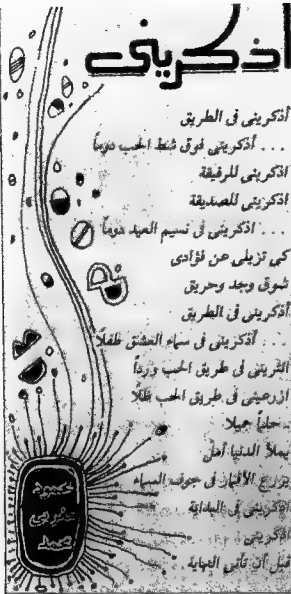 أذكرينى
أذكرينى فى الطريق
... أذكرينى فوق شط الحب دوماً
اذكرينى للرفيقة
اذكرينى للصديقة
... اذكرينى فى نسيم العيد دوماً
كى تزيلى عن فؤادى
شوق وجد وحريق
أذكرينى فى الطريق
... أذكرينى فى سماء العشق طفلاً
انثرينى فى طريق الحب ورداً
ازرعينى فى طريق الحب ظلا
جميلا
يملأ الدنيا
يزرع الأقمار فى جوف السماء
اذكرينى فى البداية
اذكرينى
قبل أن تأتى النهاية
محمود
محمد